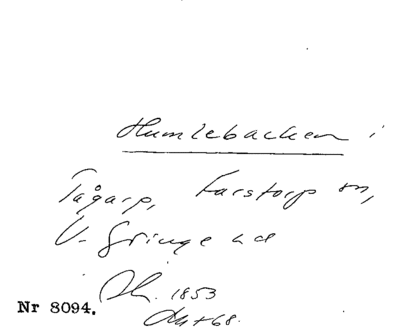 Humlebacken i
Tågarp, Farstorp sn,
V. Göinge hd
1853
Nr 8094.